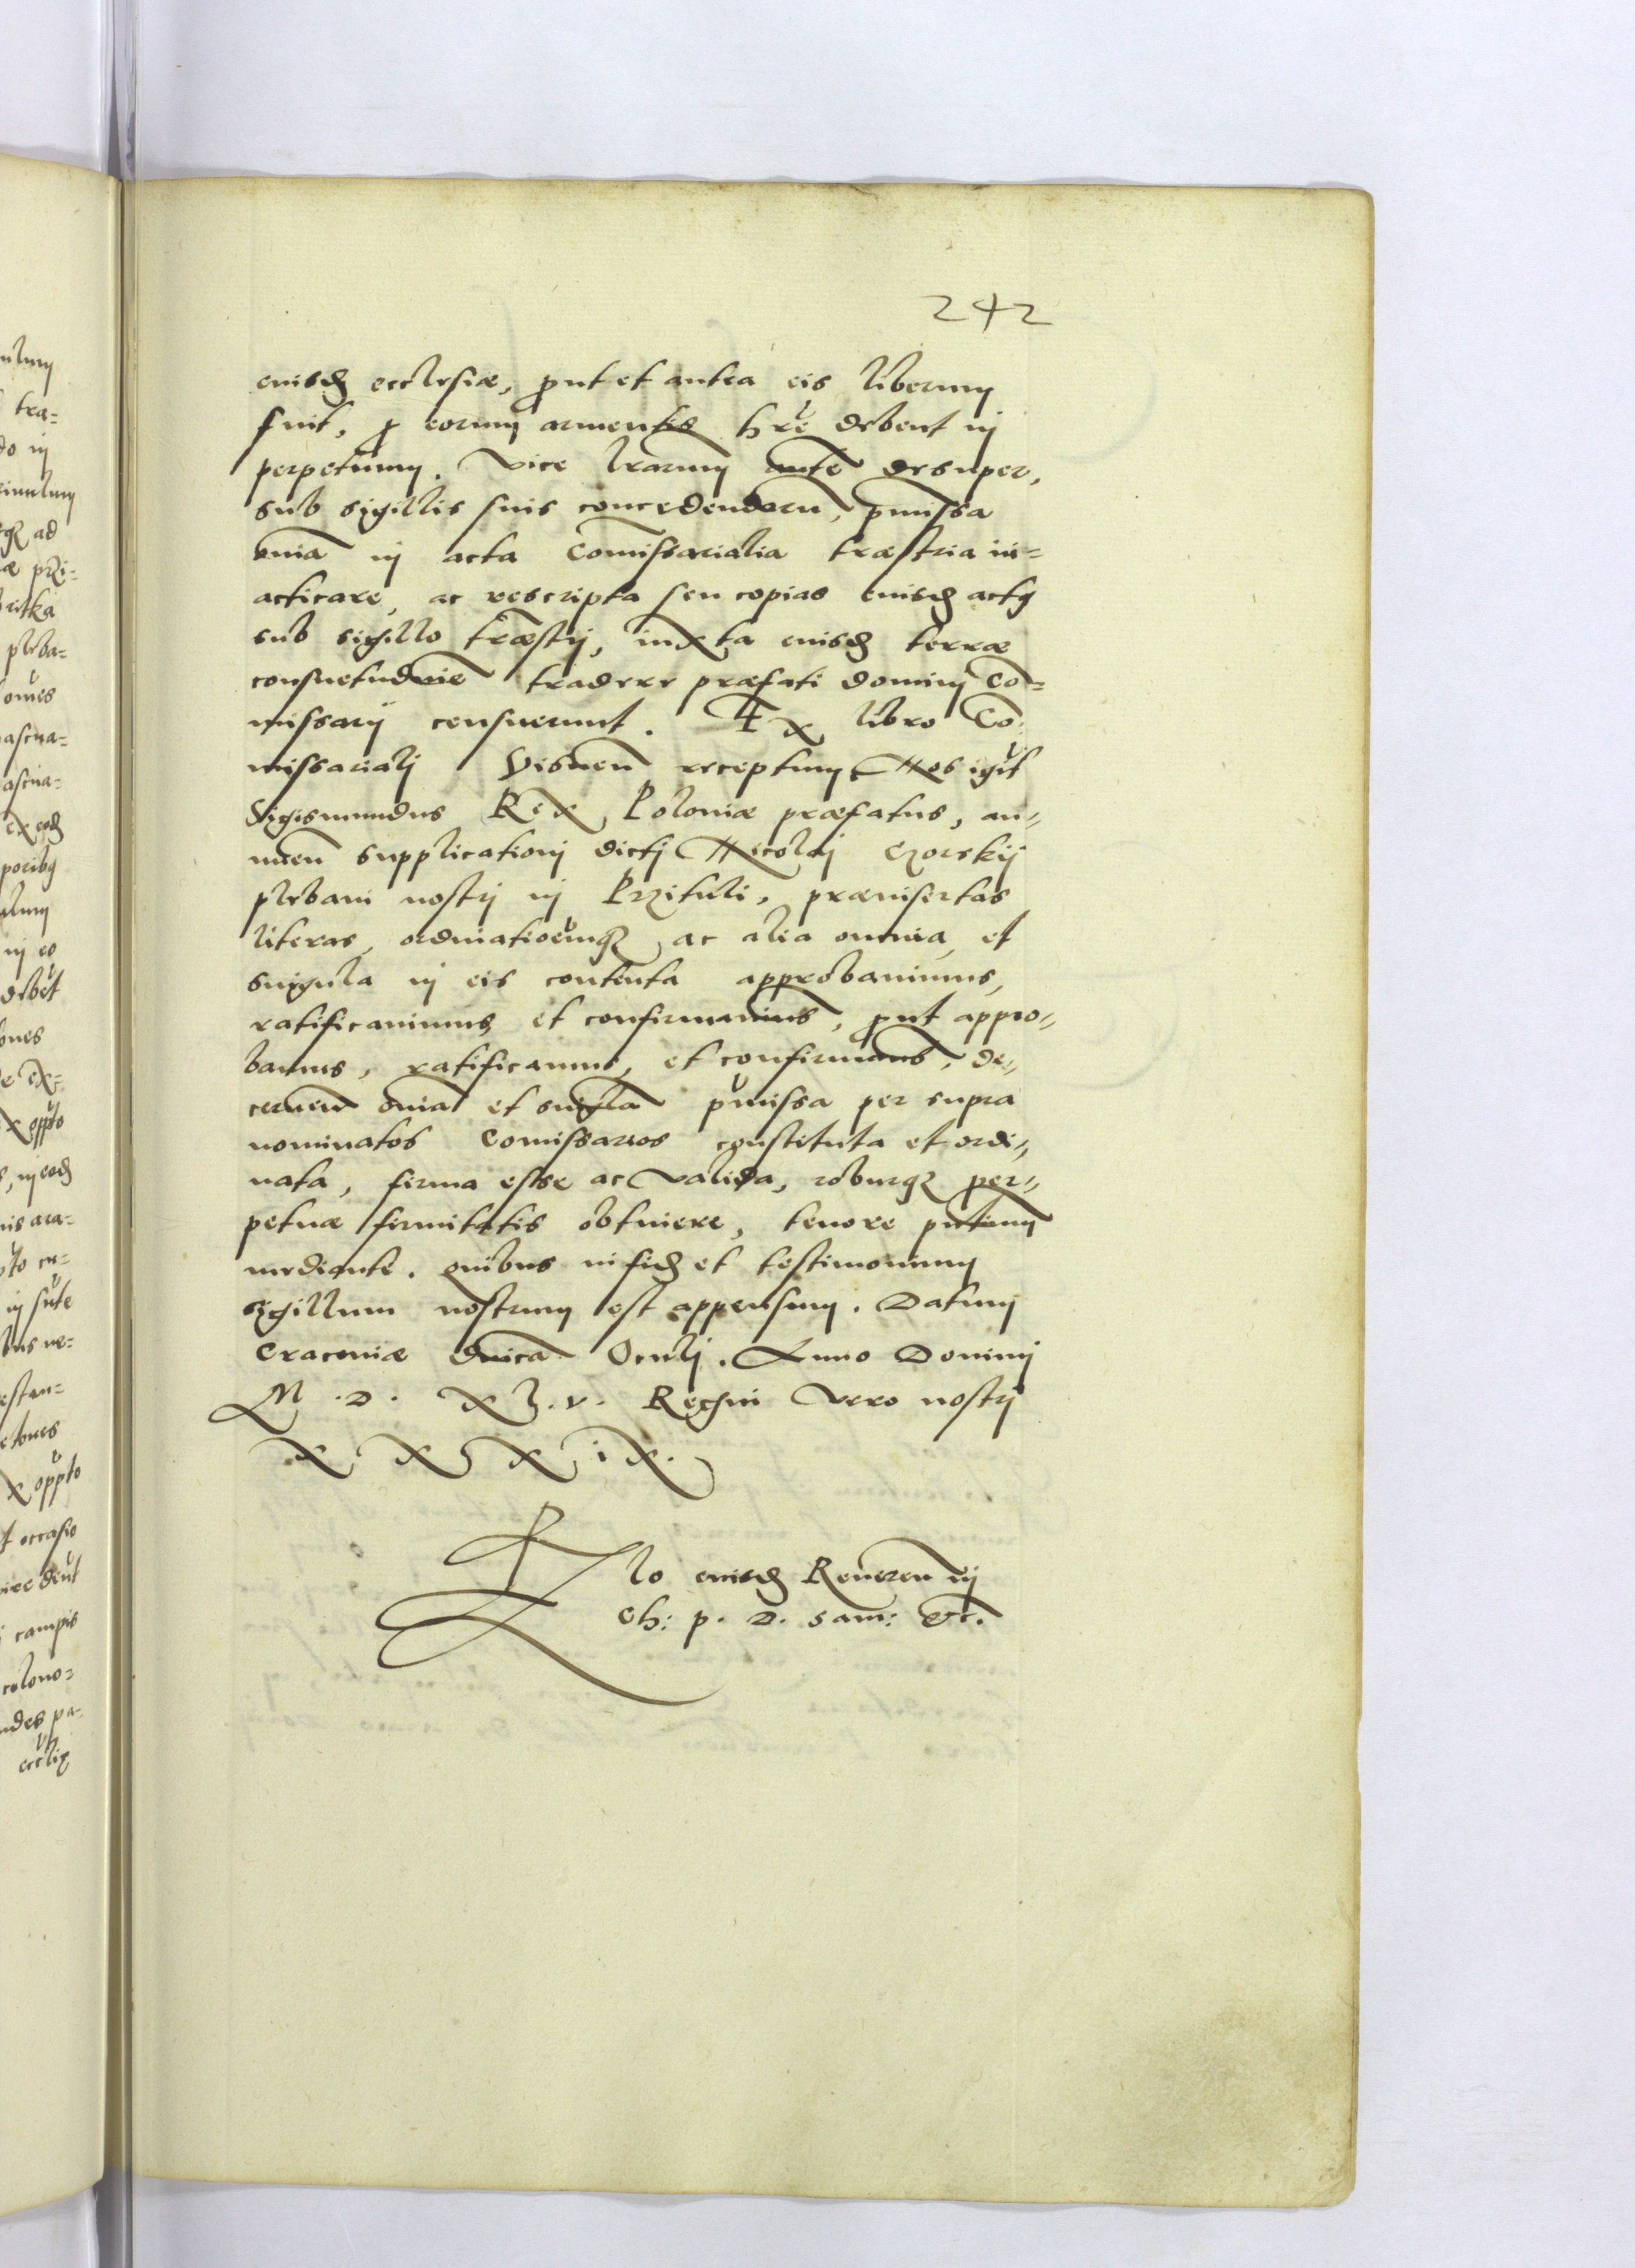 242
eiusdẽ ecclesiæ, ꝓut et antea eis liberum
fuit, ꝓ eorum armentis hr̃e debent in
perpetuum. Vice lrarum desuper,
sub sigillis suis concedendarũ, p̃missa
om̃ia in acta Com̃issarialia træstria in=
acticare, ac rescripta seu copias eiusdẽ actꝰ
sub sigillo træstri, iuxta eiusdẽ terræ
consuetudinẽ tradere præfati domini Cõ=
missarij censuerunt. Ex libro Cõ=
missariali Visneñ receptum. Nos igĩt
Sigismundus Rex Poloniæ præfatus, an=
nueñ supplicationi dicti Nicolai Czorskij
plebani nostri in Przituli, præinsertas
literas, ordinatioẽmqꝫ ac alia omnia et
singula in eis contenta approbauimus,
ratificauimus et confirmauimus, ꝓut appro=
bamus, ratificamus, et confirmamus, de=
cerneñ om̃ia et singl̃a p̃missa per supra
nominatos Comissarios constituta et ordi=
nata, firma esse ac valida, roburqꝫ per=
petuæ firmitatis obtinere, tenore p̃ntium
mediante. quibus in fidẽ et testimonium
sigillum nostrum est appensum. Datum
Cracouiæ dnica Oculi. Anno Domini
M . D . XL . V . Regni vero nostri
XXXIX.
Rlo eiusdẽ Reuereñ in
Ch: p. D. Sam: etc.